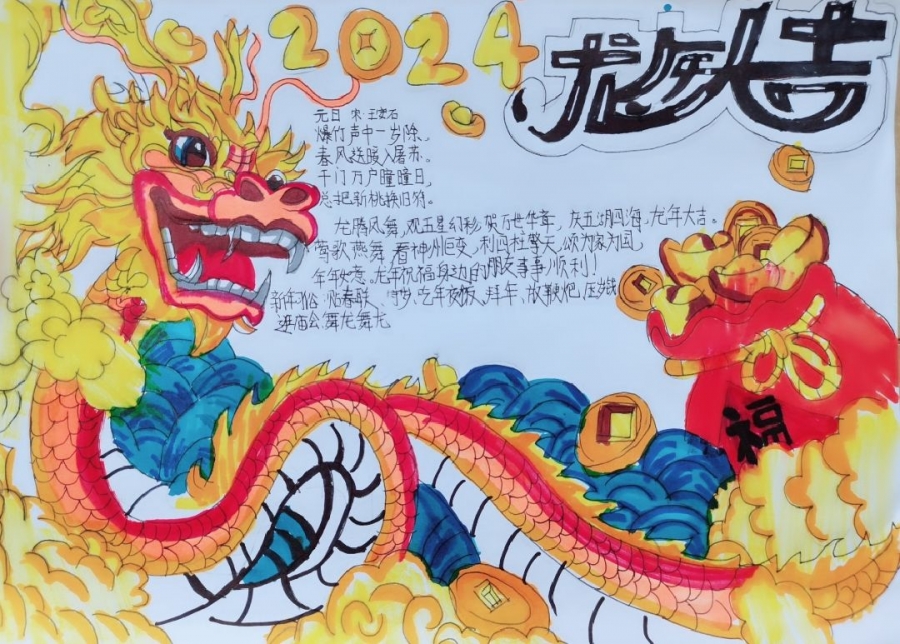 2024
龙年大吉
元日 宋 王安石
爆竹声中一岁除,
春风送暖入屠苏。
千门万户曈曈日,
总把新桃换旧符。
龙腾凤舞,观五星幻彩,贺万世华章,庆五湖四海,龙年大吉。
莺歌燕舞,看神州巨变,利四柱擎天,颂为家为国,
年年如意。龙年祝福身边的朋友事事顺利!
新年习俗 贴春联、守岁、吃年夜饭、拜年、放鞭炮、压岁钱
逛庙会、舞龙舞龙
福